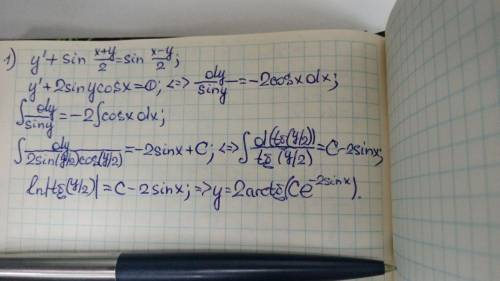 1) y' + sin (x+y)/2 = sin (x-y)/2;
y' + 2sinycosx = 0; <=> dy/siny = -2cosxdx;
∫ dy/siny = -2∫cosxdx;
∫ dy/(2sin(y/2)cos(y/2)) = -2sinx + C; <=> ∫ d(tg(y/2))/tg(y/2) = C - 2sinx;
ln|tg(y/2)| = C - 2sinx; => y = 2arctg(Ce^(-2sinx)).